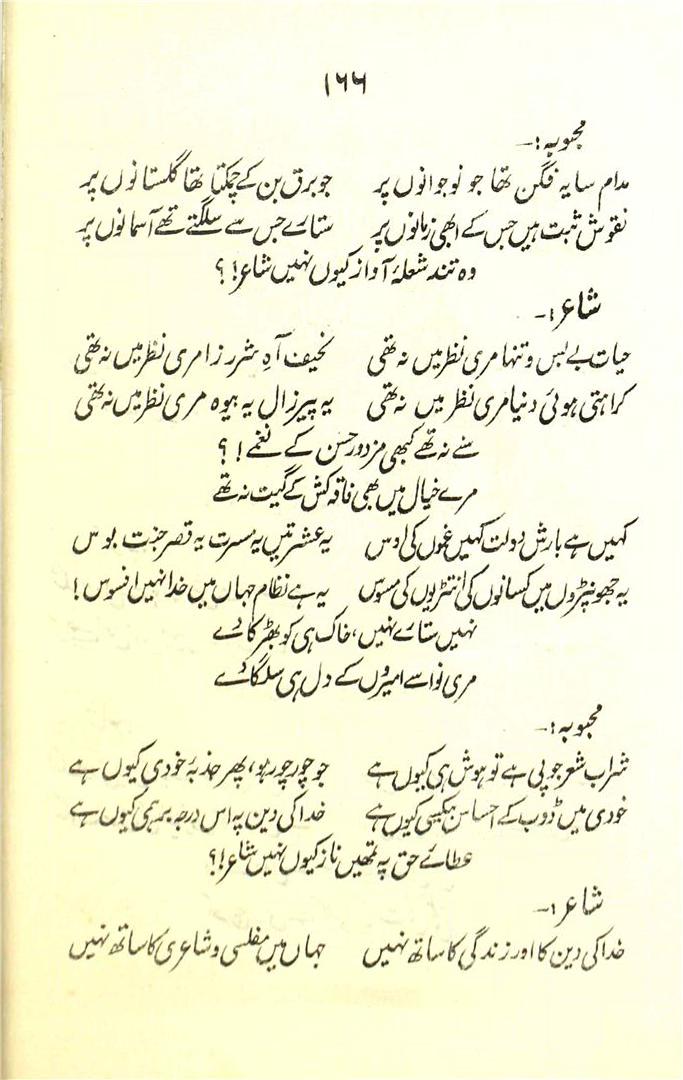 ۱۶۶
محبوبہ:۔
مدام سایہ فگن تھا جو نوجوانوں پر جو برق بن کے چمکتا تھا گلستانوں پر
نقوش ثبت ہیں جس کے ابھی زمانوں پر ستارے جس سے سلگتے تھے آسمانوں پر
وہ تند شعلۂ آواز کیوں نہیں شاعر!؟
شاعر:۔
حیات بے بس و تنہا مری نظر میں نہ تھی نحیف آہِ شرر زا مری نظر میں نہ تھی
کراہتی ہوئی دنیا مری نظر میں نہ تھی یہ پیر زال یہ بیوہ مری نظر میں نہ تھی
سنے نہ تھے کبھی مزدور حسن کے نغمے!؟
مرے خیال میں بھی فاقہ کش کے گیت نہ تھے
کہیں ہے بارش دولت کہیں غموں کی اوس یہ عشرتیں یہ مسرت یہ قصر جنت بوس
یہ جھونپڑوں میں کسانوں کی انتڑیوں کی مسوس یہ ہے نظام جہاں میں خدا نہیں افسوس!
نہیں ستارے نہیں، خاک ہی کو بھڑکا دے
مری نوا سے امیروں کے دل ہی سلگا دے
محبوبہ:۔
شراب شعر جو پی ہے تو ہوش ہی کیوں ہے جو چور چور ہو، پھر جذبۂ خودی کیوں ہے
خودی میں ڈوب کے احساس بیکسی کیوں ہے خدا کی دین پہ اس درجہ برہمی کیوں ہے
عطائے حق پہ تمھیں ناز کیوں نہیں شاعر!؟
شاعر:۔
خدا کی دین کا اور زندگی کا ساتھ نہیں جہاں میں مفلسی و شاعری کا ساتھ نہیں